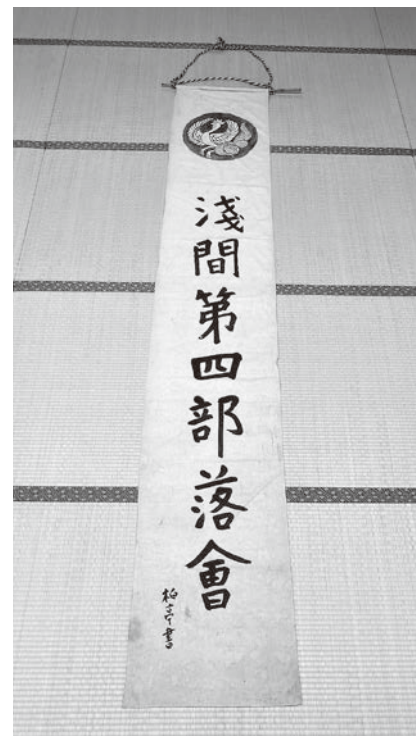 淺間第四部落會
柏亭書